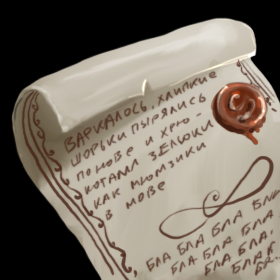 ВАРКАЛОСЬ, ХЛИПКИЕ
ШОРЬКИ ПЫРЯЛИСЬ
ПО НАВЕ И ХРЮ-
КОТАЛИ ЗЕЛЮКИ
КАК МЮМЗИКИ
В МОВЕ
, БЛА БЛА БЛА БЛА
БЛА БЛА БЛА
БЛА БЛА БЛА.
БЛА БЛА!